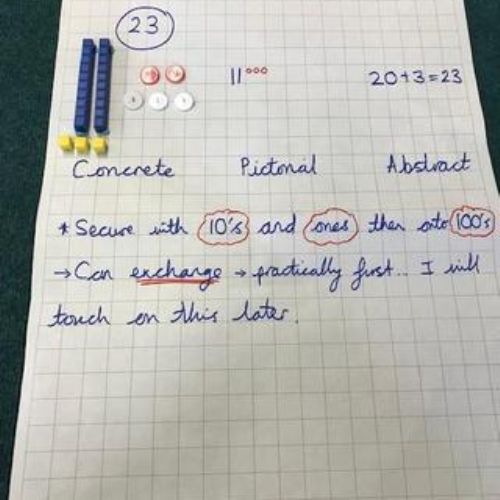 23
20+3=23
Concrete Pictorial Abstract
* Secure with 10's and ones then onto 100's
→ Can exchange → practically first... I will
touch on this later.